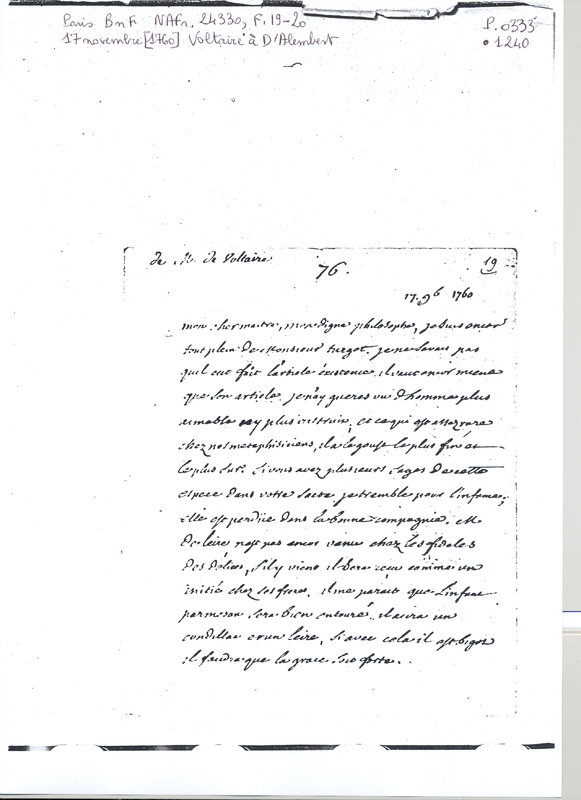 Paris BnF NAFr. 24330, F. 19-20
P. 0333
17 novembre [1760] Voltaire à D'Alembert
• 1240
de M. de Voltaire
76.
19
17. 9b 1760
mon cher maitre, mon digne philosophe, je suis encor
tout plein de Monsieur turgot. je ne savais pas
quil eut fait l'article existence. il vaut encor mieux
que son article. je n'ay gueres vu d'homme plus
aimable ny plus instruit, et ce qui est assez rare
chez nos metaphisiciens, il a le goust le plus fin et
le plus sur. si vous avez plusieurs sages de cette
espece dans votre secte je tremble pour l'infame;
elle est perdüe dans la bonne compagnie. M
De leire n'est pas encor venu chez les fideles
des délices, s'il y vient il sera recu comme un
initié chez ses freres. il me parait que l'infant
parmesan sera bien entouré. il aura un
condillac et un leire, si avec cela il est bigot
il faudra que la grace soit forte.